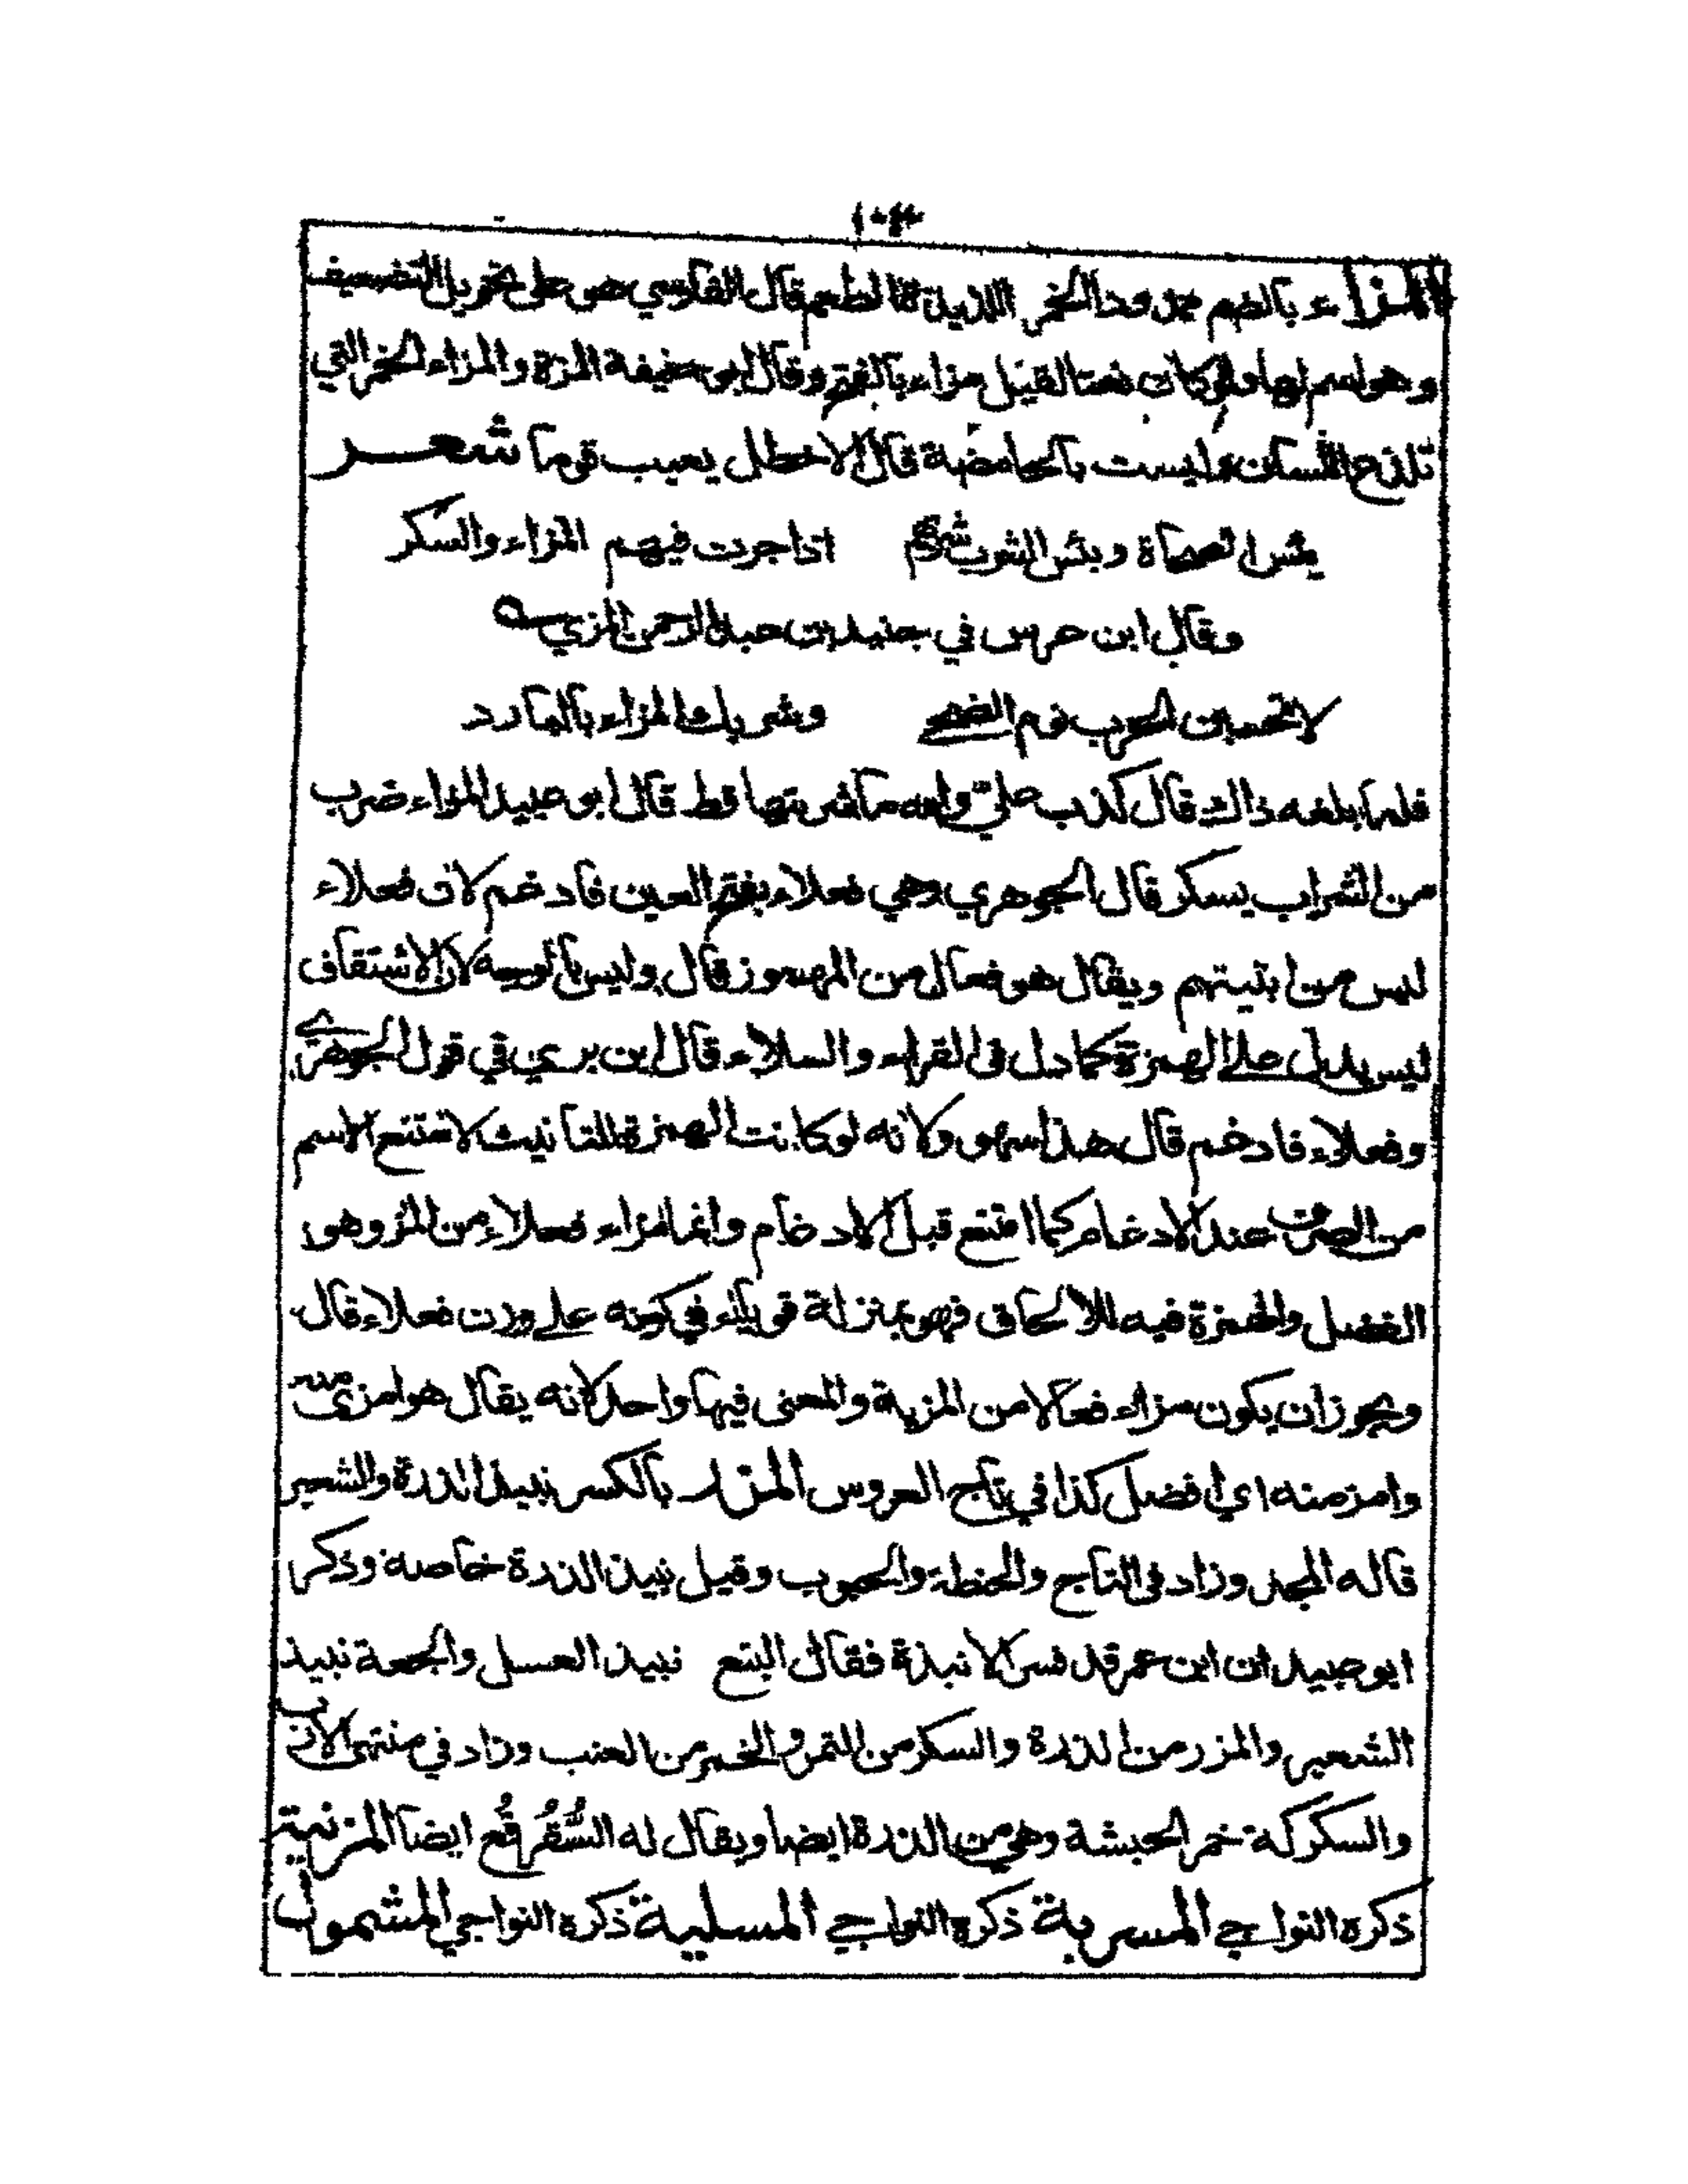 المزاء بالضم ممدودا الخمر اللذيذة الطعم قال الفارسي هو على تحويل التضعيف
وهو اسم لها ولو كان نعتا لقيل مزاء بالفتح وقال ابو حنيفة المزة والمزاء الخمر التي
تلذع اللسان وليست بالحامضة قال الاخطل يعيب قوما شعر
بئس الصحاة وبئس الشرب شربهم اذا جرت فيهم المزاء والسكر
وقال ابن عرس في جنيد بن عبد الرحمن المزي
لا تحسبن الحرب نوم الضحى وشربك المزاء بالبارد
فلما بلغه ذالك قال كذب علي والله ما شربتها قط قال ابو عبيد المزاء ضرب
من الشراب يسكر قال الجوهري وهي فعلاء بفتح العين فادغم لان فعلاء
ليس من ابنيتهم ويقال هو فعال من المهموز قال وليس بالوجه لان الاشتقاق
ليس يدل على الهمزة كما دل في القراء والسلاء قال ابن بري في قول الجوهري
وفعلاء فادغم قال هذا سهو ولانه لو كانت الهمزة للتانيث لامتنع الاسم
من الصرف عند الادغام كما امتنع قبل الادغام وانما مزاء فعلاء من المز وهو
الفضل والهمزة فيه للالحاق فهو بمنزلة قوباء في كونه على وزن فعلاء قال
ويجوز ان يكون مزاء فعالا من المزية والمعنى فيها واحد لانه يقال هو امزى منه
وامز منه اي افضل كذا في تاج العروس المزر بالكسر نبيذ الذرة والشعير
قاله المجد وزاد في التاج والحنطة والحبوب وقيل نبيذ الذرة خاصة وذكر
ابو عبيد ان ابن عمر قد فسر الانبذة فقال البتع نبيذ العسل والجعة نبيذ
الشعير والمزر من الذرة والسكر من التمر والخمر من العنب وزاد في منتهى الارب
والسكركة خمر الحبشة وهي من الذرة ايضا ويقال له السُّقُرقُع ايضا المزنية
ذكره النواجي المسربة ذكره النواجي المسلية ذكره النواجي المشمول